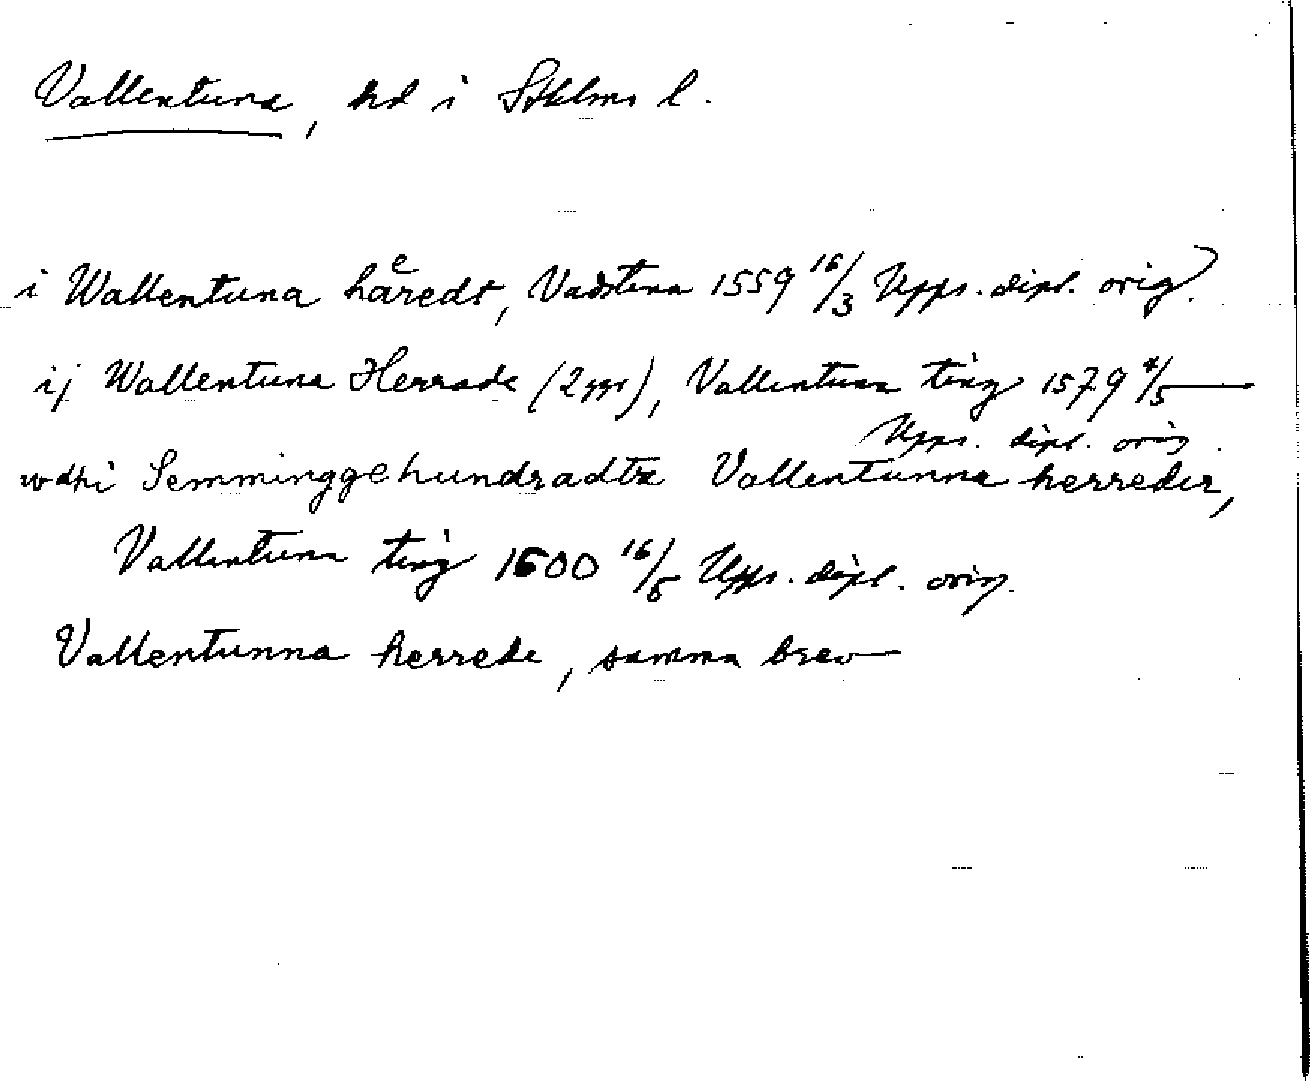 Vallentuna, hd i Stklms l.
i Wallentuna håredt, Vadstena 1559 16/3 Upps. dipl. orig.
ij Wallentuna Herrade (2 ggr), Vallentuna ting 1579 4/5
Upps. dipl. orig.
wdhi Semminggehundradtz Vallentunna herreder,
Vallentuna ting 1600 16/6 Upps. dipl. orig.
Vallentunna herrede, samma brev